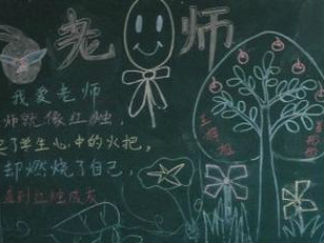 老师
我爱老师
师就像红烛,
了学生心中的火把,
却燃烧了自己,
直到红烛成灰